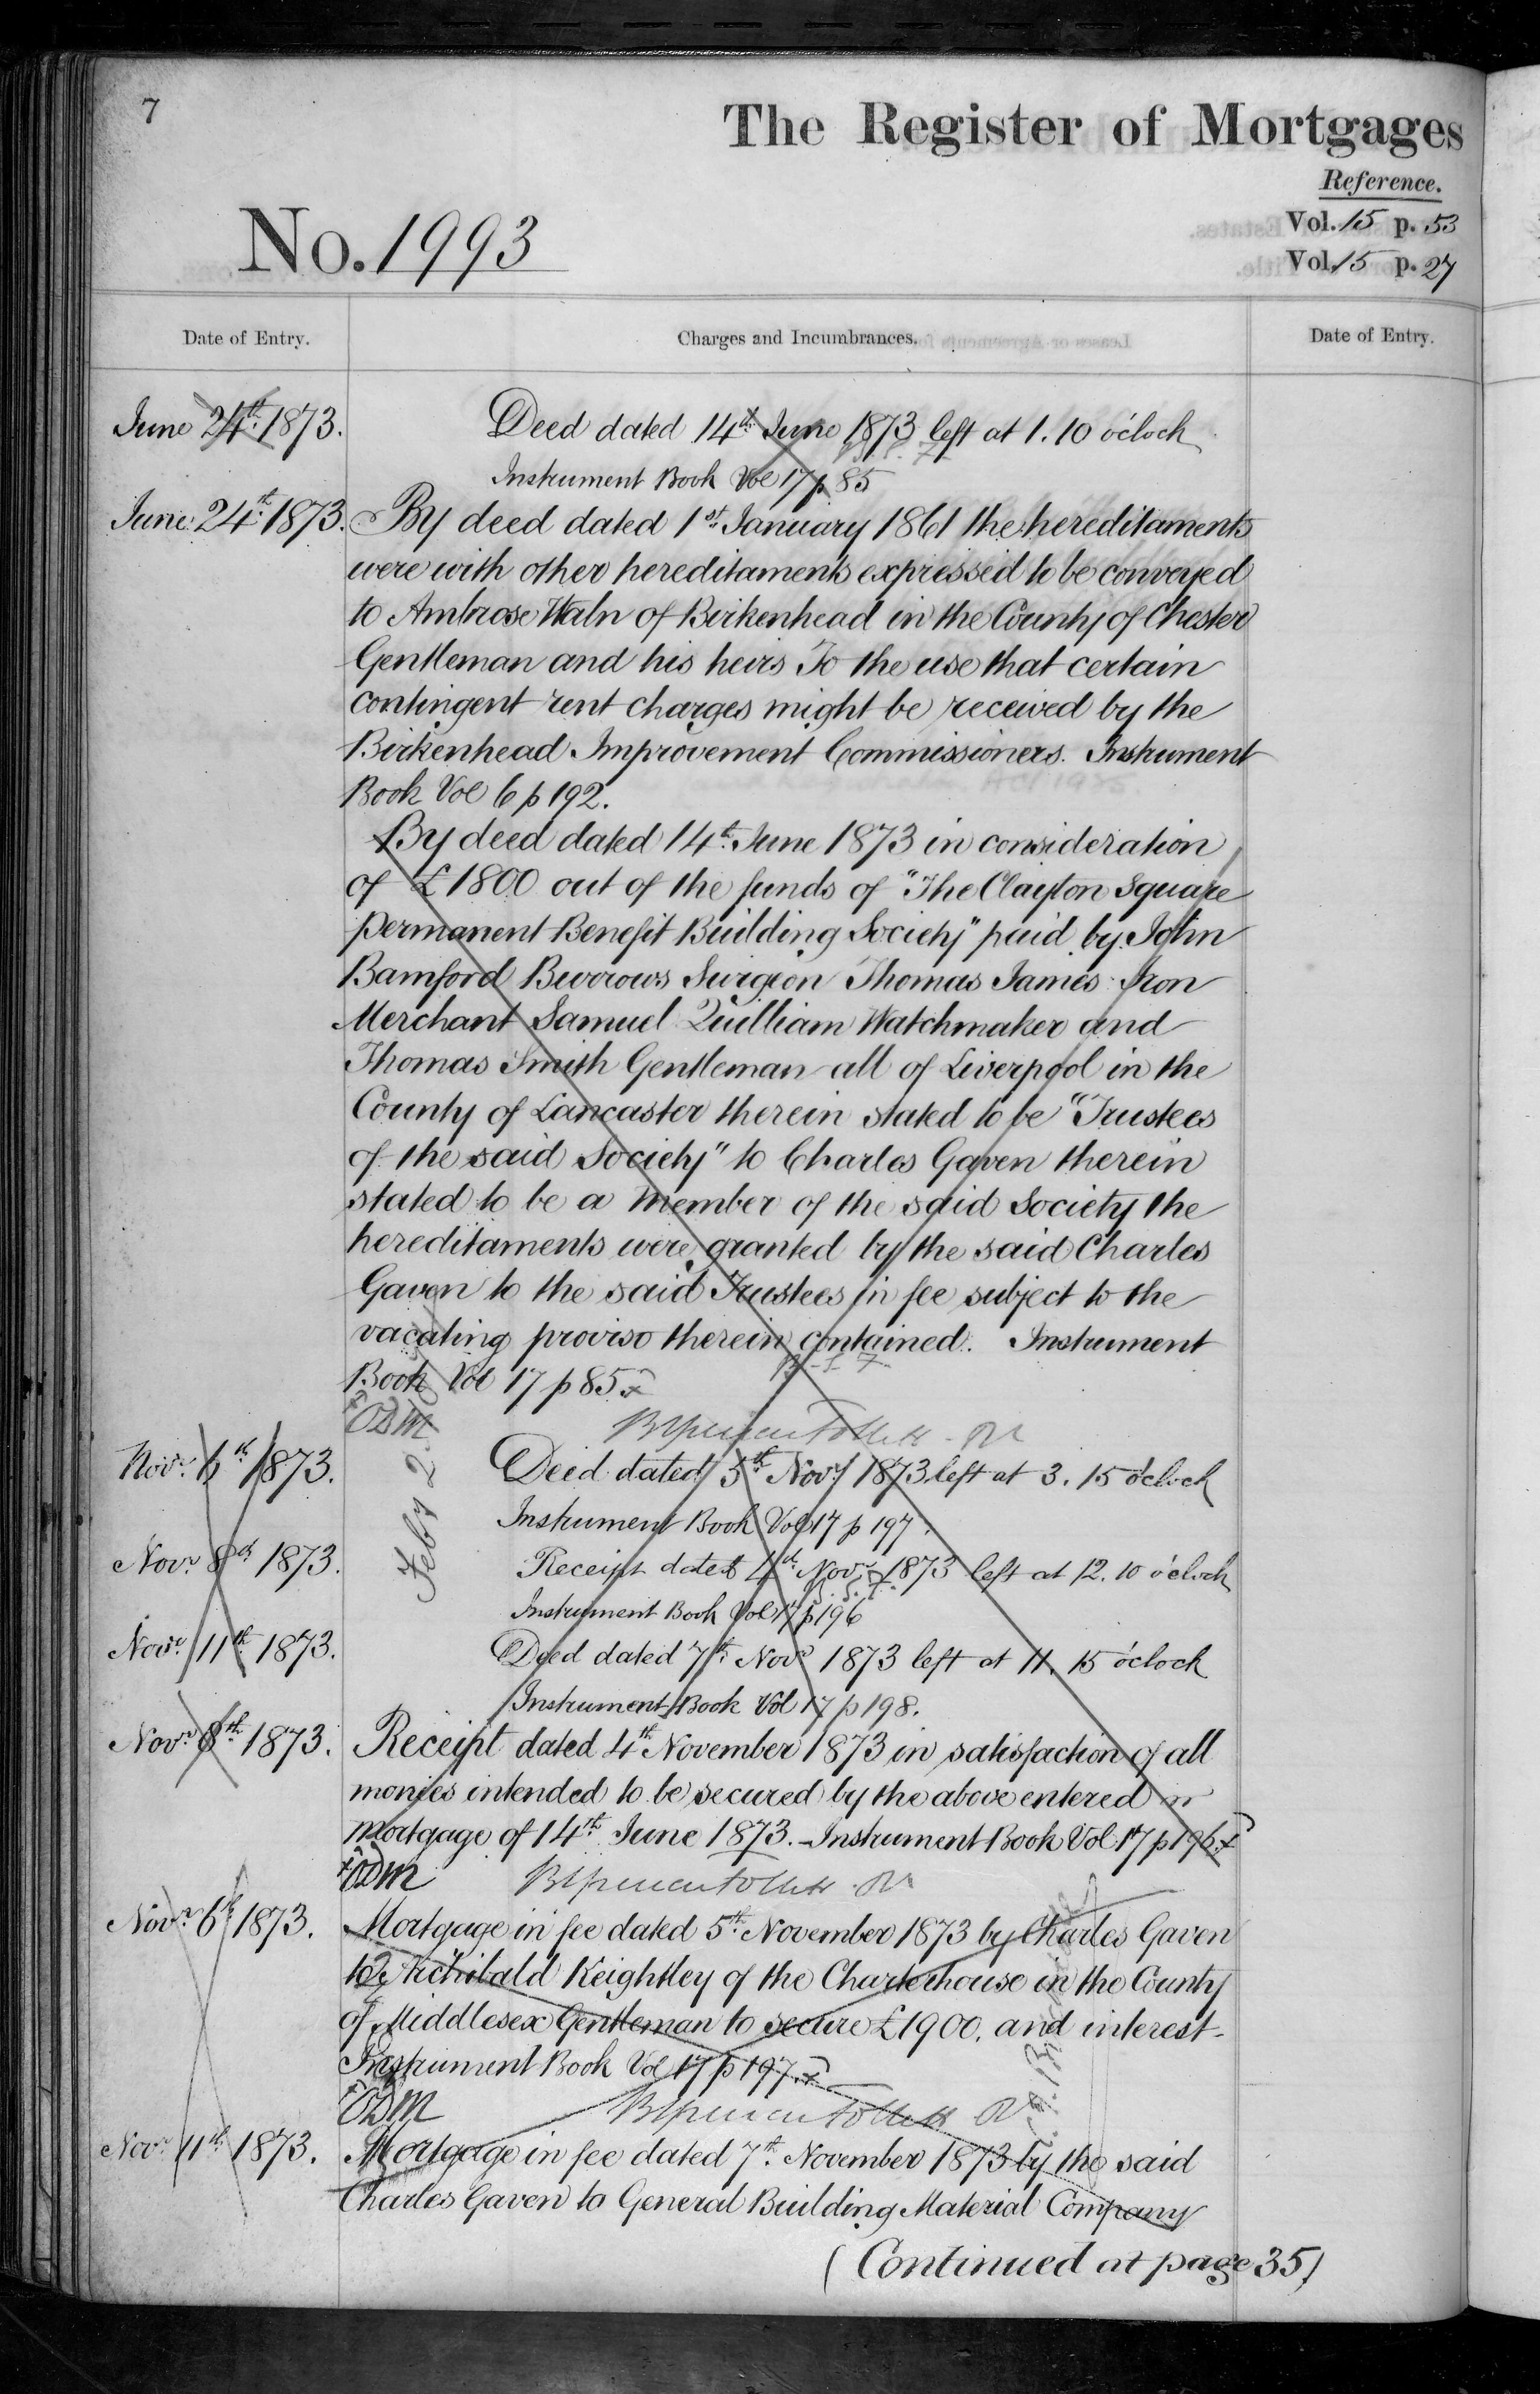 7
The Register of Mortgages
Reference.
Vol. 15 p. 53
No. 1993
Vol. 15 p. 27
Date of Entry.
Charges and Incumbrances.
Date of Entry.
June 24th 1873.
Deed dated 14th June 1873 left at 1.10 o'clock
Instrument Book Vol 17 p 85
June 24th 1873.
By deed dated 1st January 1861 the hereditaments
were with other hereditaments expressed to be conveyed
to Ambrose Waln of Birkenhead in the County of Chester
Gentleman and his heirs To the use that certain
contingent rent charges might be received by the
Birkenhead Improvement Commissioners. Instrument
Book Vol 6 p 192.
By deed dated 14th June 1873 in consideration
of £1800 out of the funds of "The Clayton Square
Permanent Benefit Building Society" paid by John
Bamford Burrows Surgeon Thomas James Iron
Merchant Samuel Quilliam Watchmaker and
Thomas Smith Gentleman all of Liverpool in the
County of Lancaster therein stated to be "Trustees
of the said Society" to Charles Gaven therein
stated to be a member of the said Society the
hereditaments were granted by the said Charles
Gaven to the said Trustees in fee subject to the
vacating proviso therein contained. Instrument
Book Vol 17 p 85
ODM
Novr. 6th 1873.
Deed dated 5th Novr 1873 left at 3.15 o'clock
Instrument Book Vol 17 p 197.
Novr. 8th 1873.
Receipt dated 4th Novr 1873 left at 12.10 o'clock
Instrument Book Vol 17 p 196
Novr 11th 1873.
Deed dated 7th Novr 1873 left at 11.15 o'clock
Instrument Book Vol 17 p 198.
Novr. 8th 1873.
Receipt dated 4th November 1873 in satisfaction of all
monies intended to be secured by the above entered
mortgage of 14th June 1873. Instrument Book Vol 17 p 196
ODM
Novr. 6th 1873.
Mortgage in fee dated 5th November 1873 by Charles Gaven
to Archibald Keightley of the Charterhouse in the County
of Middlesex Gentleman to secure £1900, and interest
Instrument Book Vol 17 p 197
ODM
Novr 11th 1873.
Mortgage in fee dated 7th November 1873 by the said
Charles Gaven to General Building Material Company
(Continued at page 35)